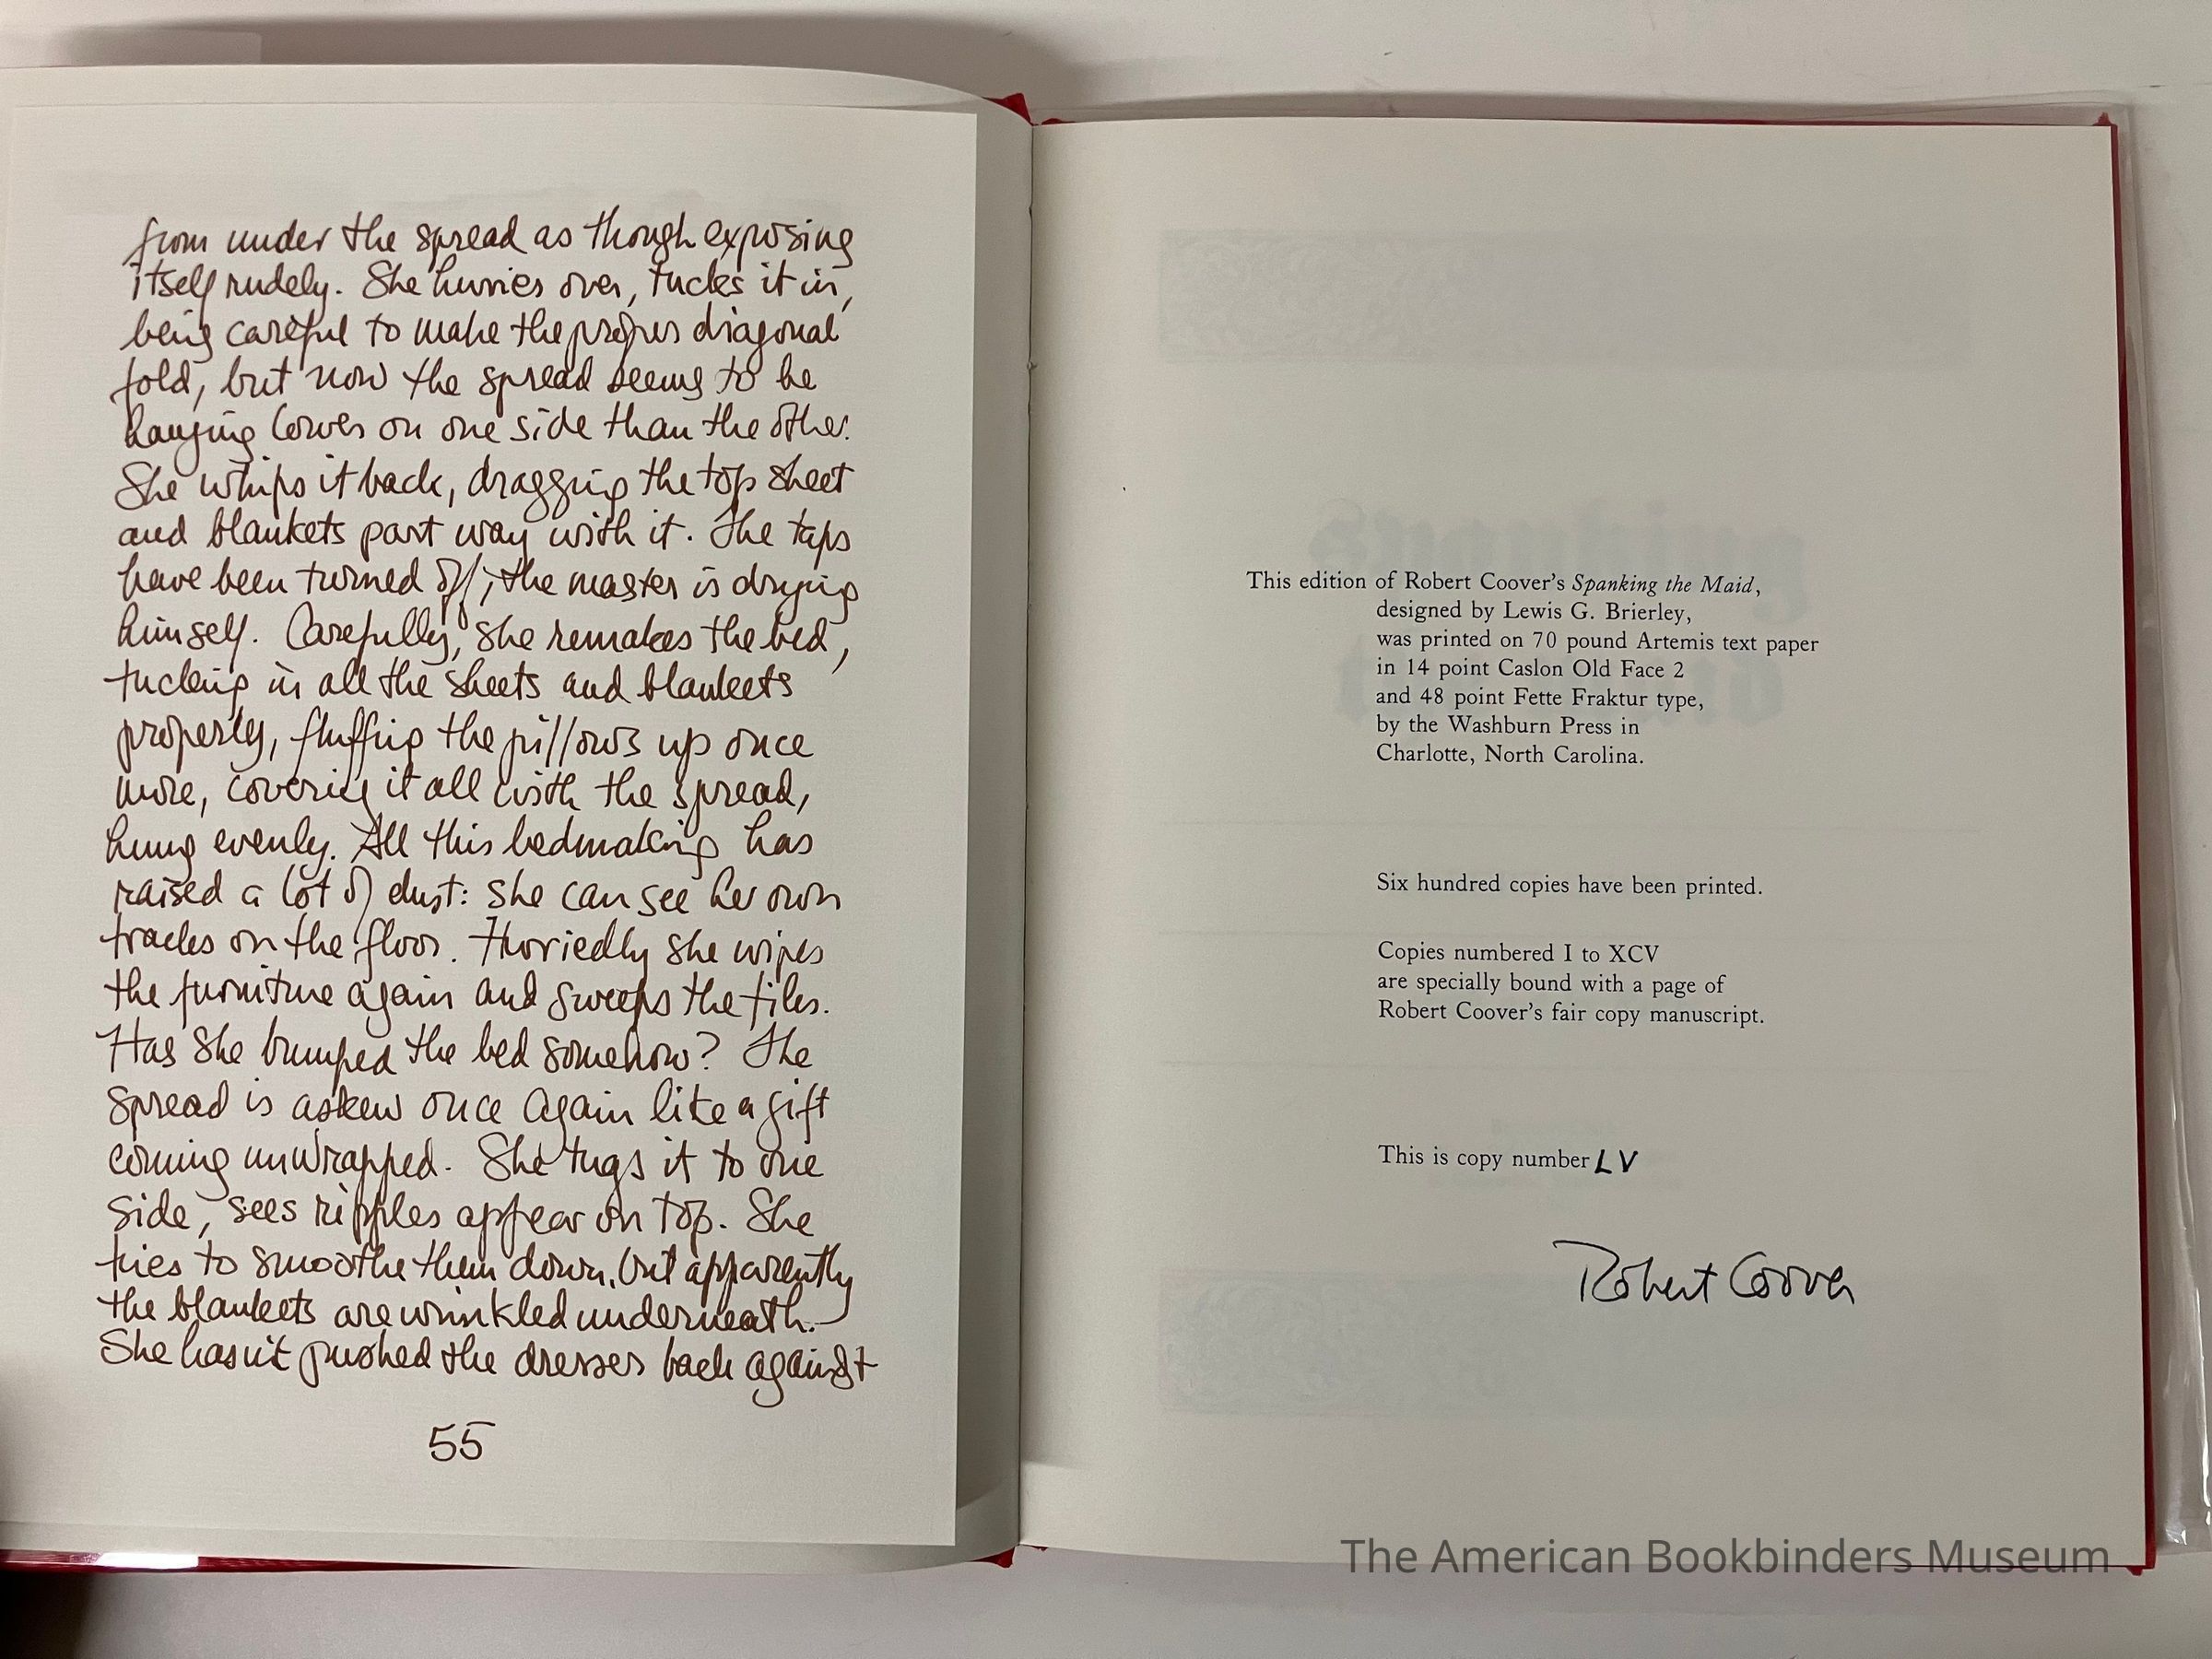 from under the spread as though exposing
itself rudely. She hurries over, tucks it in,
being careful to make the proper diagonal
fold, but now the spread seems to be
hanging lower on one side than the other.
She whips it back, dragging the top sheet
and blankets part way with it. The taps
have been turned off, the master is drying
himself. Carefully, she remakes the bed,
tucking in all the sheets and blankets
properly, fluffing the pillows up once
more, covering it all with the spread,
hung evenly. All this bedmaking has
raised a lot of dust: she can see her own
tracks on the floor. Hurriedly she wipes
the furniture again and sweeps the tiles.
Has she bumped the bed somehow? The
spread is askew once again like a gift
coming unwrapped. She tugs it to one
side, sees ripples appear on top. She
tries to smoothe them down, but apparently
the blankets are wrinkled underneath.
She hasn't pushed the dresser back against
55
This edition of Robert Coover's Spanking the Maid,
designed by Lewis G. Brierley,
was printed on 70 pound Artemis text paper
in 14 point Caslon Old Face 2
and 48 point Fette Fraktur type,
by the Washburn Press in
Charlotte, North Carolina.
Six hundred copies have been printed.
Copies numbered I to XCV
are specially bound with a page of
Robert Coover's fair copy manuscript.
This is copy number LV
Robert Coover
The American Bookbinders Museum